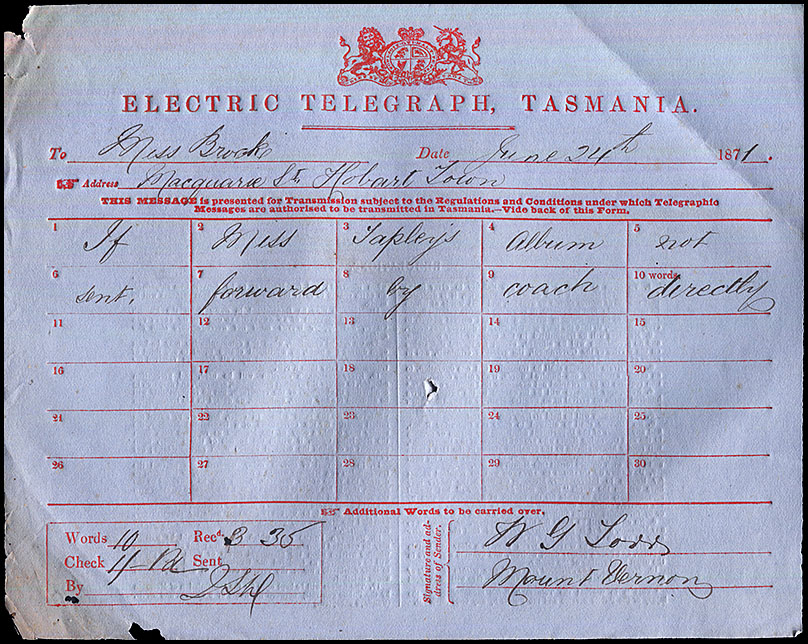 ELECTRIC TELEGRAPH, TASMANIA.
To Miss Brooke Date June 24th 1871.
Address Macquarie St. Hobart Town
THIS MESSAGE is presented for Transmission subject to the Regulations and Conditions under which Telegraphic
Messages are authorised to be transmitted in Tasmania.—Vide back of this Form.
1 If 2 Miss 3 Tapley's 4 album 5 not
6 sent, 7 forward 8 by 9 coach 10 words. directly
11 12 13 14 15
16 17 18 19 20
21 22 23 24 25
26 27 28 29 30
Additional Words to be carried over.
Words 10 Recd. 3 35
Check 1/- Pd Sent
By
Signature and address of Sender.
W G
Mount Vernon